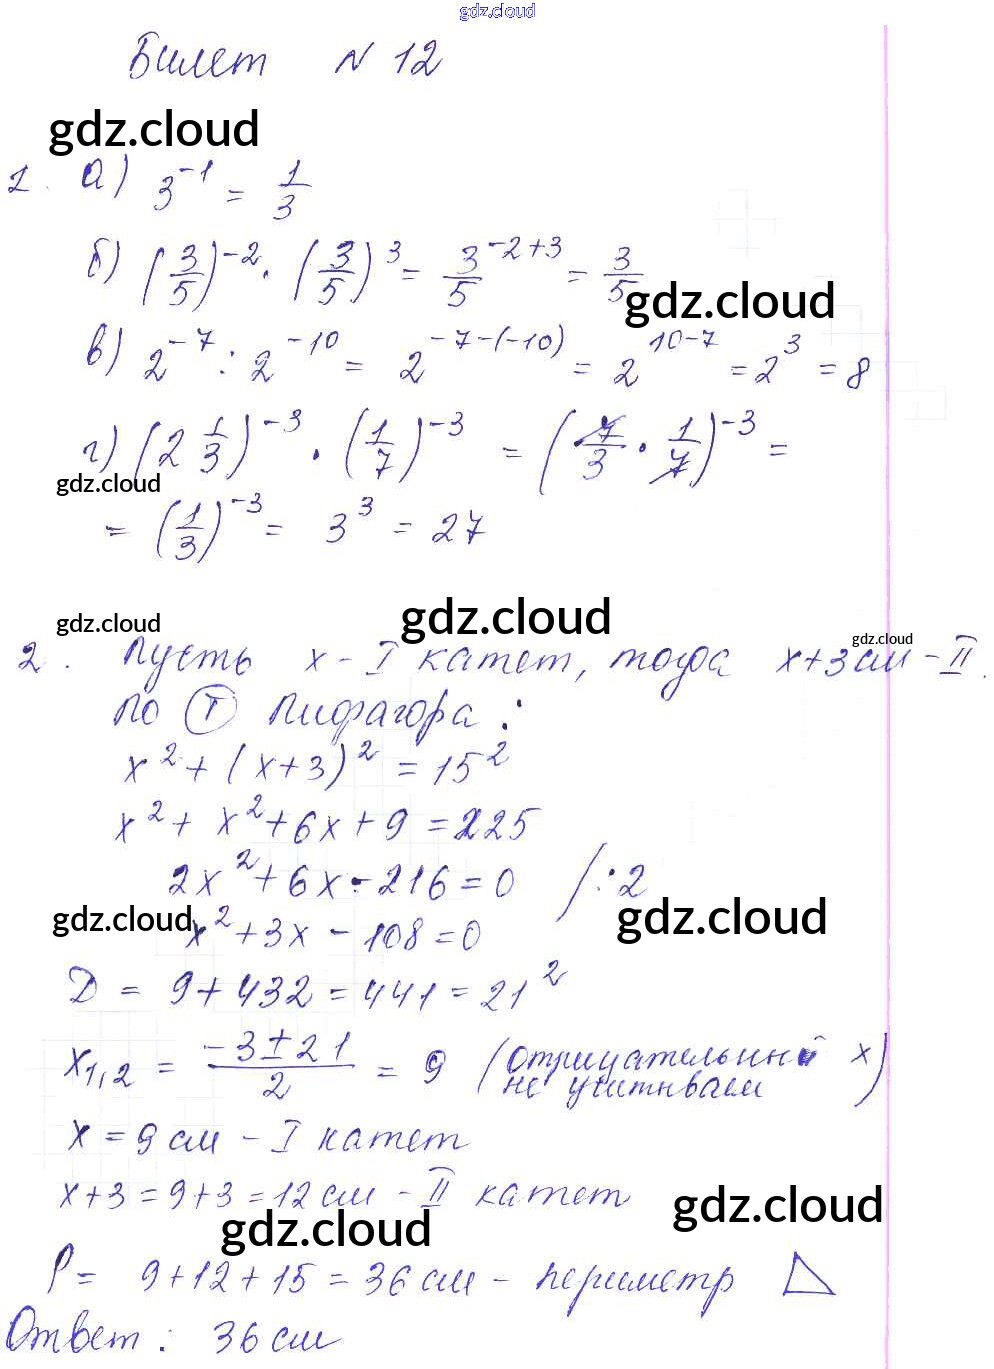 gdz.cloud
Билет N 12
gdz.cloud
1. а) 3^-1 = 1/3
б) (3/5)^-2 · (3/5)^3 = 3/5^-2+3 = 3/5
gdz.cloud
в) 2^-7 : 2^-10 = 2^-7-(-10) = 2^10-7 = 2^3 = 8
г) (2 1/3)^-3 · (1/7)^-3 = (7/3 · 1/7)^-3 =
gdz.cloud
= (1/3)^-3 = 3^3 = 27
gdz.cloud gdz.cloud gdz.cloud
2. Пусть x - I катет, тогда x+3 см - II.
По Т Пифагора:
x^2 + (x+3)^2 = 15^2
x^2 + x^2 + 6x + 9 = 225
2x^2 + 6x - 216 = 0 /:2
gdz.cloud gdz.cloud
x^2 + 3x - 108 = 0
D = 9 + 432 = 441 = 21^2
x1,2 = -3 ± 21 / 2 = 9 (отрицательный x
не учитываем)
x = 9 см - I катет
x+3 = 9+3 = 12 см - II катет
gdz.cloud gdz.cloud
P = 9+12+15 = 36 см - периметр △
Ответ: 36 см